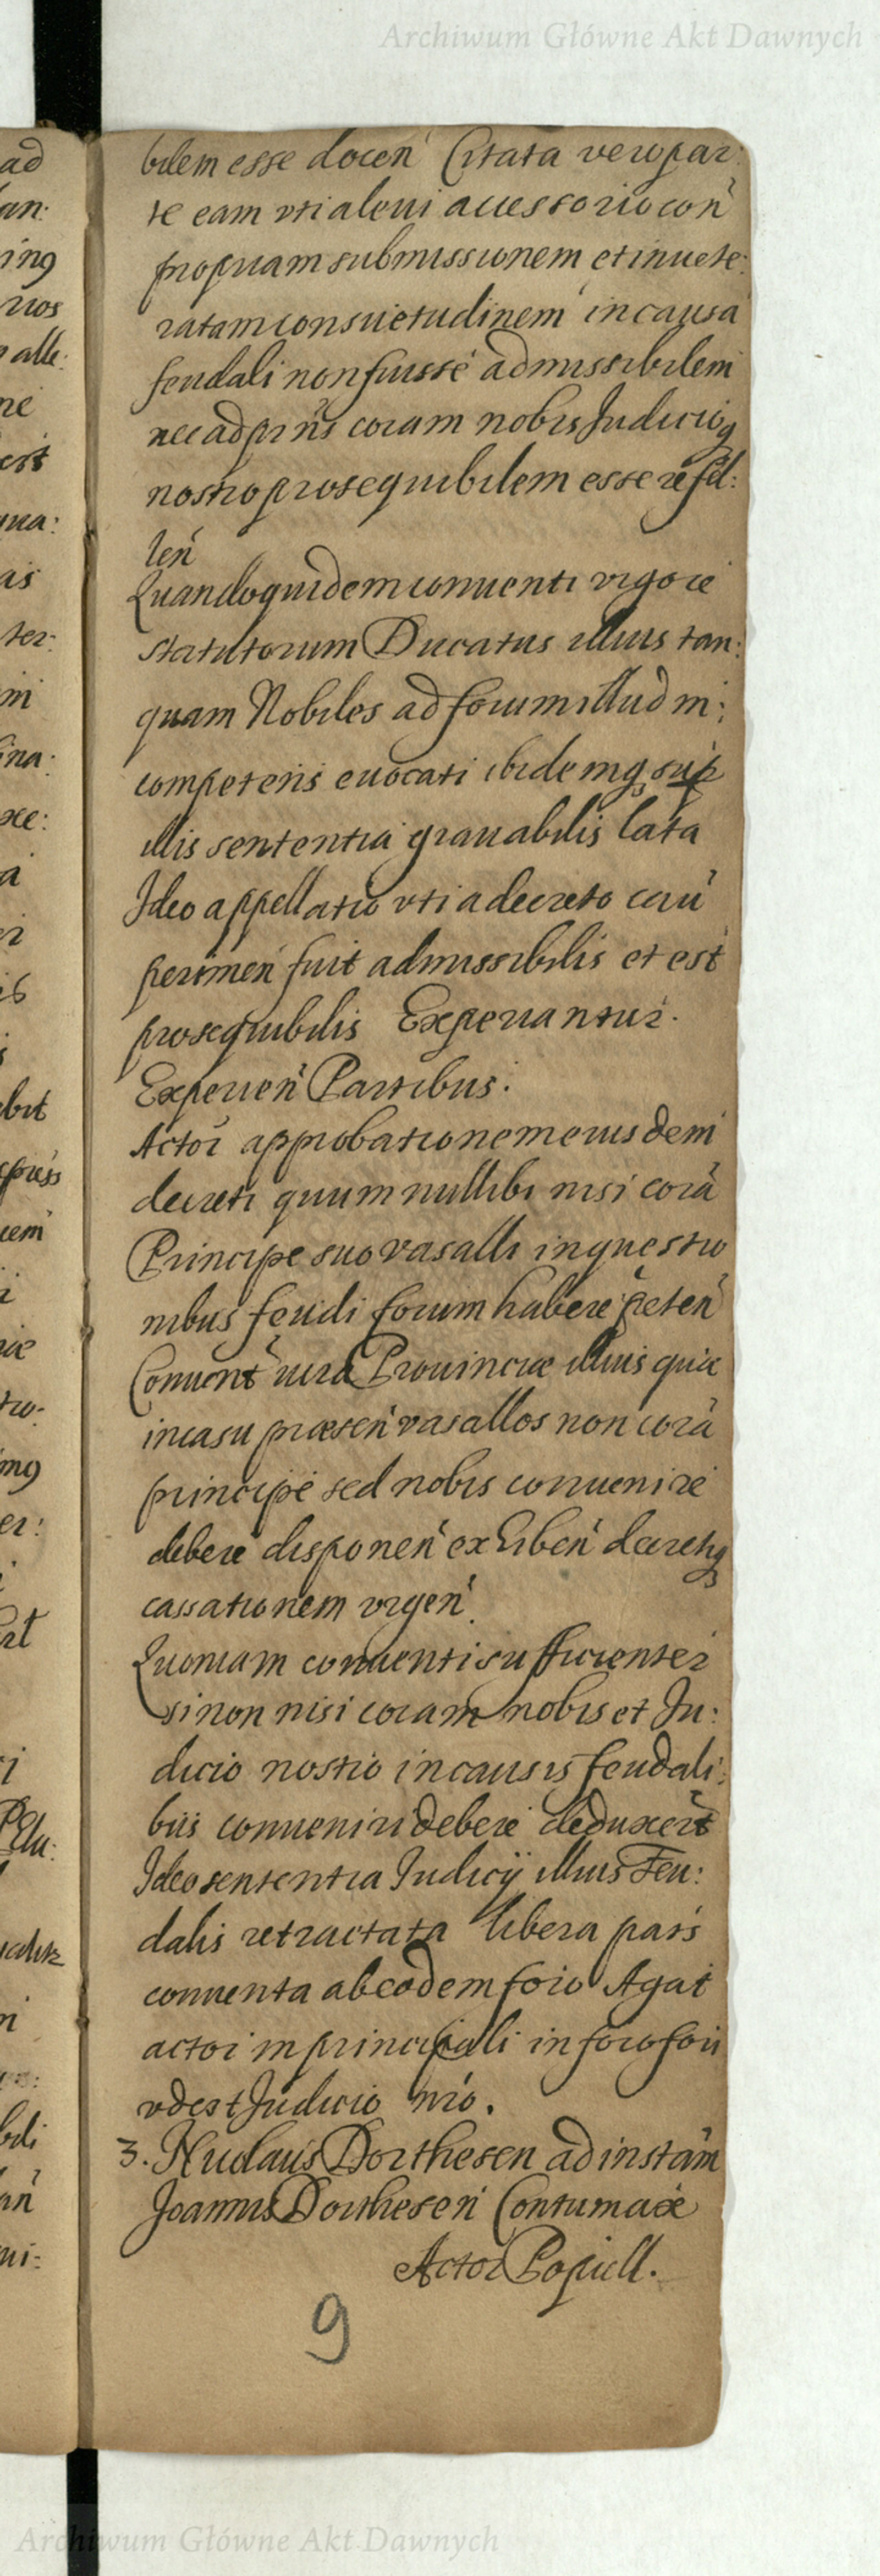 Archiwum Główne Akt Dawnych
bilem esse docen̄ Citata vero par:
te eam vti a leui accessorio con̄
propriam submissionem et inuete:
ratam consuetudinem in causa
feudali non fuisse admissibilem
nec ad prn̄s coram nobis Judicioq
nostro prosequibilem esse refel:
len̄
Quandoquidem conuenti vigore
statutorum Ducatus illius tan:
quam Nobiles ad forum illud in:
competens euocati ibidemq sup
illis sententia grauabilis lata
Ideo appellatio vti a decreto cau̅
perimen̄ fuit admissibilis et est
prosequibilis Experiantur.
Experien̄ Partibus.
Actor approbationem eiusdem
decreti quum nullibi nisi corā
Principe suo vasalli in questio
nibus feudi forum habere peten̄
Conuent̄ iura Prouinciæ illius quæ
in casu præsen̄ vasallos non corā
principe sed nobis conuenire
debere disponen̄ exhiben̄ decretiq
cassationem vrgen̄
Quoniam conuenti sufficienter
si non nisi coram nobis et Ju:
dicio nostro in causis feudali:
bus conueniri debere deduxert
Ideo sententia Judicÿ illius Feu:
dalis retractata libera pars
conuenta ab eodem foro Agat
actor in principali in foro fori
vdest Judicio nr̄o.
3. Nicolaus Dorthesen ad instām
Joannis Dorthesen Contumaciæ
Actor Popiell.
9
Archiwum Główne Akt Dawnych